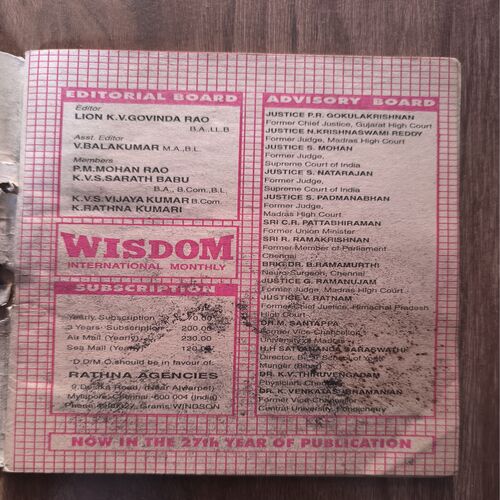 EDITORIAL BOARD
Editor
LION K.V.GOVINDA RAO
B.A.,LL.B
Asst. Editor
V.BALAKUMAR M.A.,BL.
Members
P.M.MOHAN RAO
K.V.S.SARATH BABU
B.A., B.Com.,B.L.
K.V.S.VIJAYA KUMAR B.Com.
K.RATHNA KUMARI
WISDOM
INTERNATIONAL MONTHLY
SUBSCRIPTION
Yearly Subscription
3 Years Subscription 200.00
Air Mail (Yearly) 230.00
Sea Mail (Yearly) 120.00
D.D/M.O.should be in favour of
RATHNA AGENCIES
(Near Alwarpet)
Mylapore, Chennai-600 004 (India)
Phone: Grams: WINDSON
ADVISORY BOARD
JUSTICE P.R. GOKULAKRISHNAN
Former Chief Justice, Gujarat High Court
JUSTICE N.KRISHNASWAMI REDDY
Former Judge, Madras High Court
JUSTICE S. MOHAN
Former Judge,
Supreme Court of India
JUSTICE S. NATARAJAN
Former Judge,
Supreme Court of India
JUSTICE S. PADMANABHAN
Former Judge,
Madras High Court
SRI C.R. PATTABHIRAMAN
Former Union Minister
SRI R. RAMAKRISHNAN
Former Member of Parliament
Chennai
BRIG.DR. B.RAMAMURTHI
Neuro Surgeon, Chennai
JUSTICE G. RAMANUJAM
Former Judge, Madras High Court
JUSTICE V. RATNAM
Former Chief Justice, Himachal Pradesh
High Court
DR.M. SANTAPPA
Former Vice-Chancellor
University of Madras
H.H SATYANANDA SARASWATHI
Director, Bihar School of Yoga
Munger (Bihar)
DR. K.V.THIRUVENGADAM
Physician, Chennai
DR. K. VENKATASUBRAMANIAN
Former Vice-Chancellor
Central University, Pondicherry
NOW IN THE 27th YEAR OF PUBLICATION